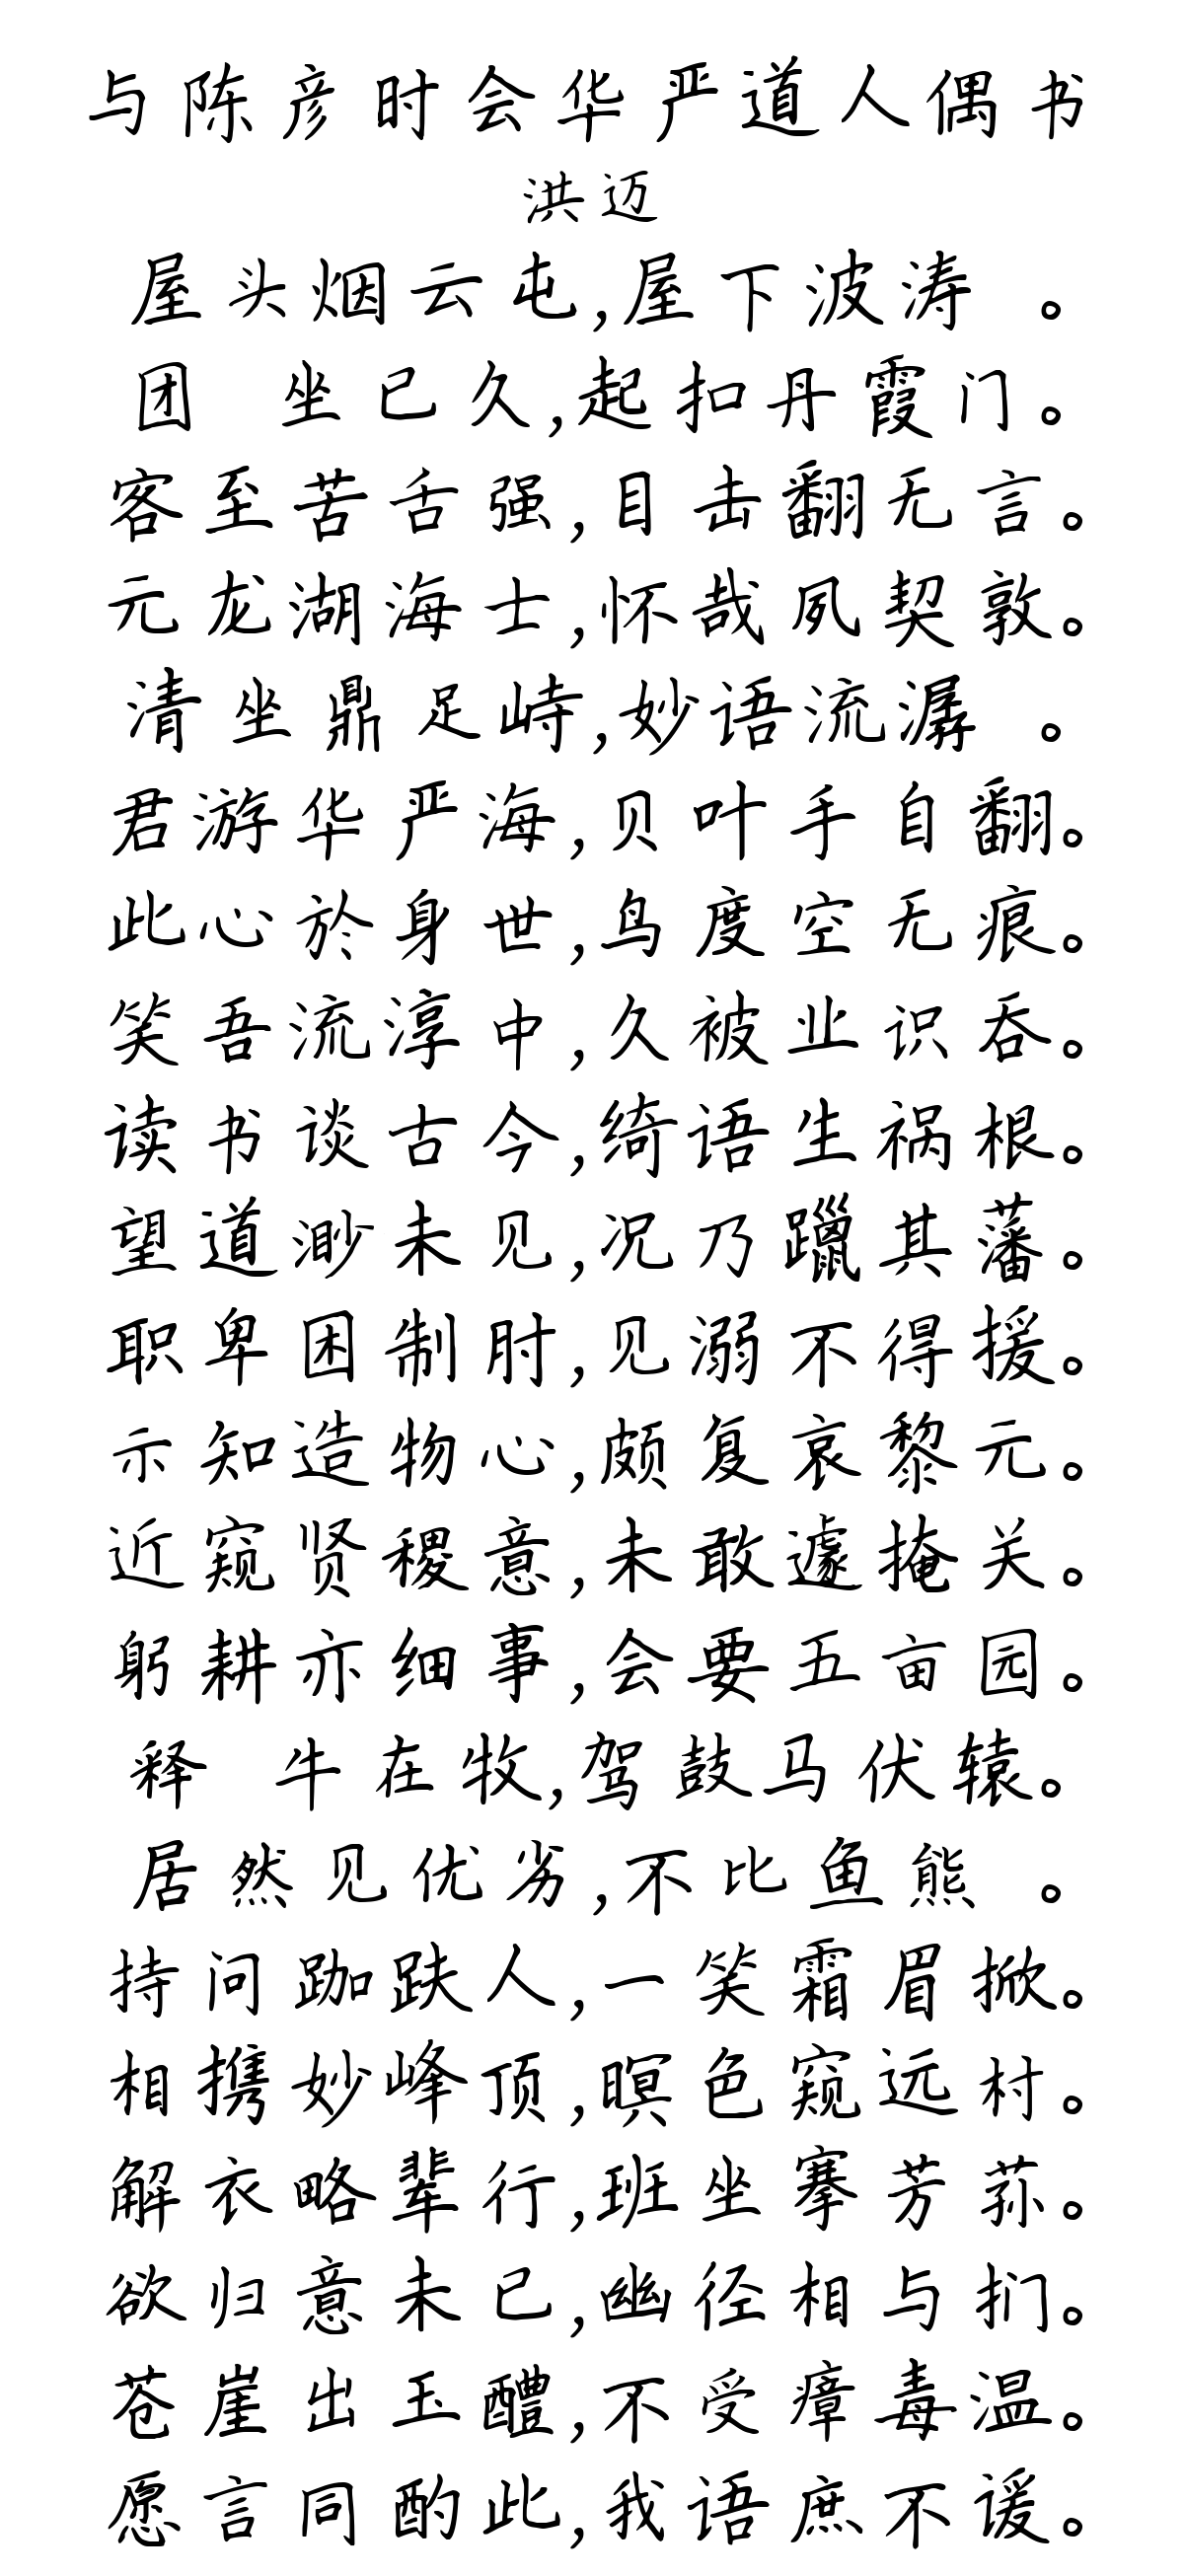 与陈彦时会华严道人偶书
洪迈
屋头烟云屯,屋下波涛 。
团 坐已久,起扣丹霞门。
客至苦舌强,目击翻无言。
元龙湖海士,怀哉夙契敦。
清坐鼎足峙,妙语流潺 。
君游华严海,贝叶手自翻。
此心於身世,鸟度空无痕。
笑吾流淳中,久被业识吞。
读书谈古今,绮语生祸根。
望道渺未见,况乃躐其藩。
职卑困制肘,见溺不得援。
示知造物心,颇复哀黎元。
近窥贤稷意,未敢遽掩关。
躬耕亦细事,会要五亩园。
释 牛在牧,驾鼓马伏辕。
居然见优劣,不比鱼熊 。
持问跏趺人,一笑霜眉掀。
相携妙峰顶,暝色窥远村。
解衣略辈行,班坐搴芳荪。
欲归意未已,幽径相与扪。
苍崖出玉醴,不受瘴毒温。
愿言同酌此,我语庶不谖。